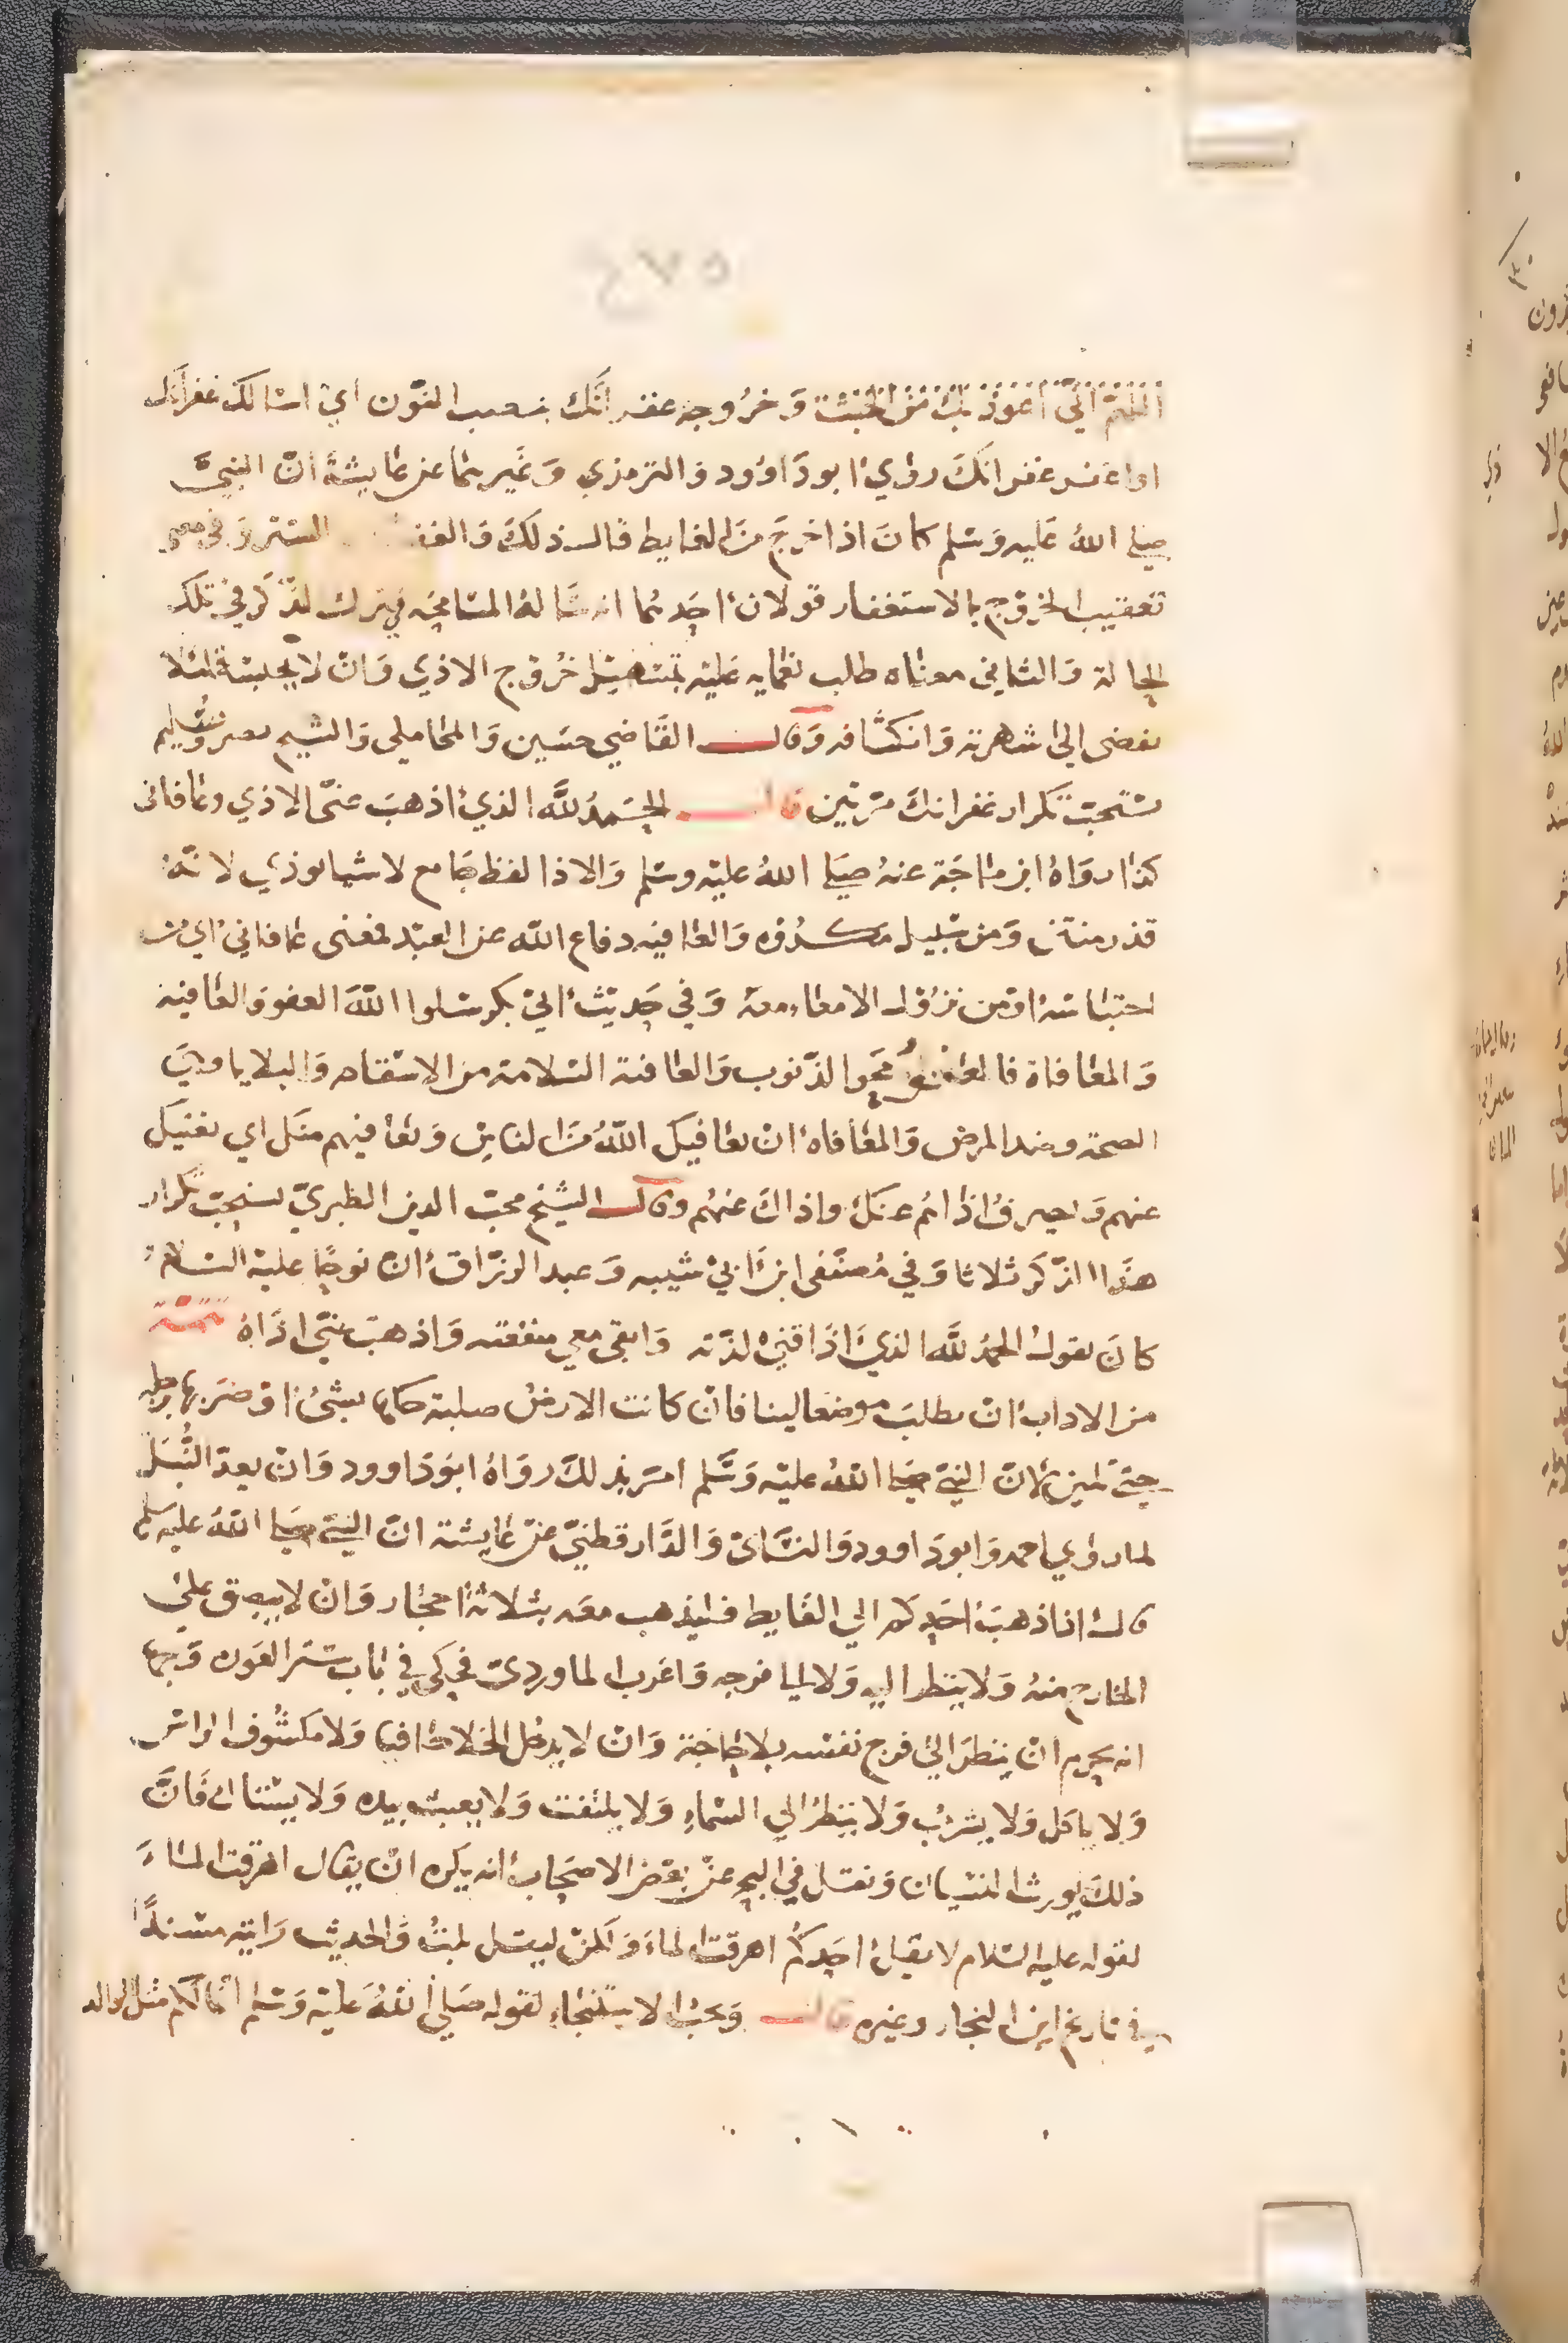 ٤٧٥
اللهم اني اعوذ بك من الخبث وَخرُوجه غفرانَك بنصب النوّن اي اسالك غفرانك
او اغفر غفرانكَ روٰي ابو دَاوُود وَالترمذي وَغَيرهما عن عايشة انّ النبيّ
صلى اللهُ عَليه وَسَلم كانَ اذا خرجَ مَن الغايط قال ذلكَ وَالغفر الستر وَفي معنى
تعقيب الخرُوج بالاستغفار قولان احَدهما انه سَاله المسَامحَه في ترك الذّكر في تلك
الحالة وَالثاني معناه طلب نعمايه عَليْه بتسْهيل خرُوج الاذي وَانْ لا يحبسه لئلا
يفضى الى شهرته وَانكشافه وَقال القَاضي حسَين وَالمحاملي وَالشيح نصر وسُليم
يستحبّ تكرار غفرانكَ مرّتين قال الحمدُ للّه الذي اذهبَ عنيّ الاذي وعافانى
كذا روَاهُ ابن ماجَة عنهُ صَلى اللهُ عليْه وسَلم وَالاذا لفظ جَامع لاشيا توذي لانهُ
قذر منتن وَمن سَبيل مكروُه وَالعافيه دفاع الله عن العبْد فمعنى عافاني اي من
احتباسه اوْ من نزوُل الامعاء معَه وَفي حَديث ابي بكر سَلوا اللّهَ العفو وَالعافيه
وَالمعافاة فالعفو محَوا الذّنوب وَالعافية السَلامة من الاسْقام وَالبلايا وهيَ
الصحة وضد المرض وَالمعَافاه انْ يعافيك اللّهُ منَ الناسْ وَيعَافيهم منَك اي يغنيك
عنهم وَيصرف اذاهُم عنكَ واذاكَ عنهُم وقال الشيخ محبّ الدين الطبريّ يستحبّ تكرار
هذا الذّكر ثلاثا وَفي مُصنَّفى ابن ابيْ شيبه وَعبد الرزّاق انّ نوحًا عليْه السَلامُ
كانَ يقولُ الحمدُ للّه الذيَ اذَاقنيْ لذّته وَابقى معي منفعَته وَاذهبَ عنّي اذَاهُ تتمة
من الاداب انْ يطلبَ موضعا لينا فانْ كانت الارضُ صلبة حكها بشئ اوْ ضرَبها برجله
حتىّ تلين لانّ النبيّ صَلى اللّهُ عليْه وَسَّلم امَر بذلكَ روَاهُ ابوَ دَاوود وَانْ يعدّ النُّبَل
لما روٰي احمد وَابو دَاوود وَالنسَايّ وَالدَّارقطنيّ عن عايشة انّ النبيّ صَلى اللهُ عليه وسلم
قال اذا ذهبَ احَدكم الي الغَايط فليذهب معَه بثلاثة احجَار وَانْ لا يبصق علىْ
الخارج منهُ وَلا ينظر اليه وَلا الي فرجه وَاغرب الماورديّ فحكي في باب ستر العَوره وَجها
انه يحرم انْ ينظرَ اليْ فرج نفسه بلا حَاجَة وَانْ لا يدخل الخلا حَافيا وَلا مكشُوف الراس
وَلا ياكل وَلا يشربُ وَلا ينظرُ الي السّماءِ وَلا يلتفت وَلا يعبث بيده وَلا يستاك فَانَّ
ذلكَ يورث النسْيان وَنقل في البحر عنْ بعض الاصحَاب انه يكره انْ يقال اهرقت الماءَ
لقوله عليه السّلام لا يقل احَدكُم اهرقت الماءَ وَلكنْ ليقل بلتُ وَالحديث رَايته مسْندًا
في تاريخ ابن النجار وغيره قال وَيجبُ الاسْتنجاءُ لقوله صَليْ اللّهُ عَليْه وَسَلم انما لكم مثل الوالد